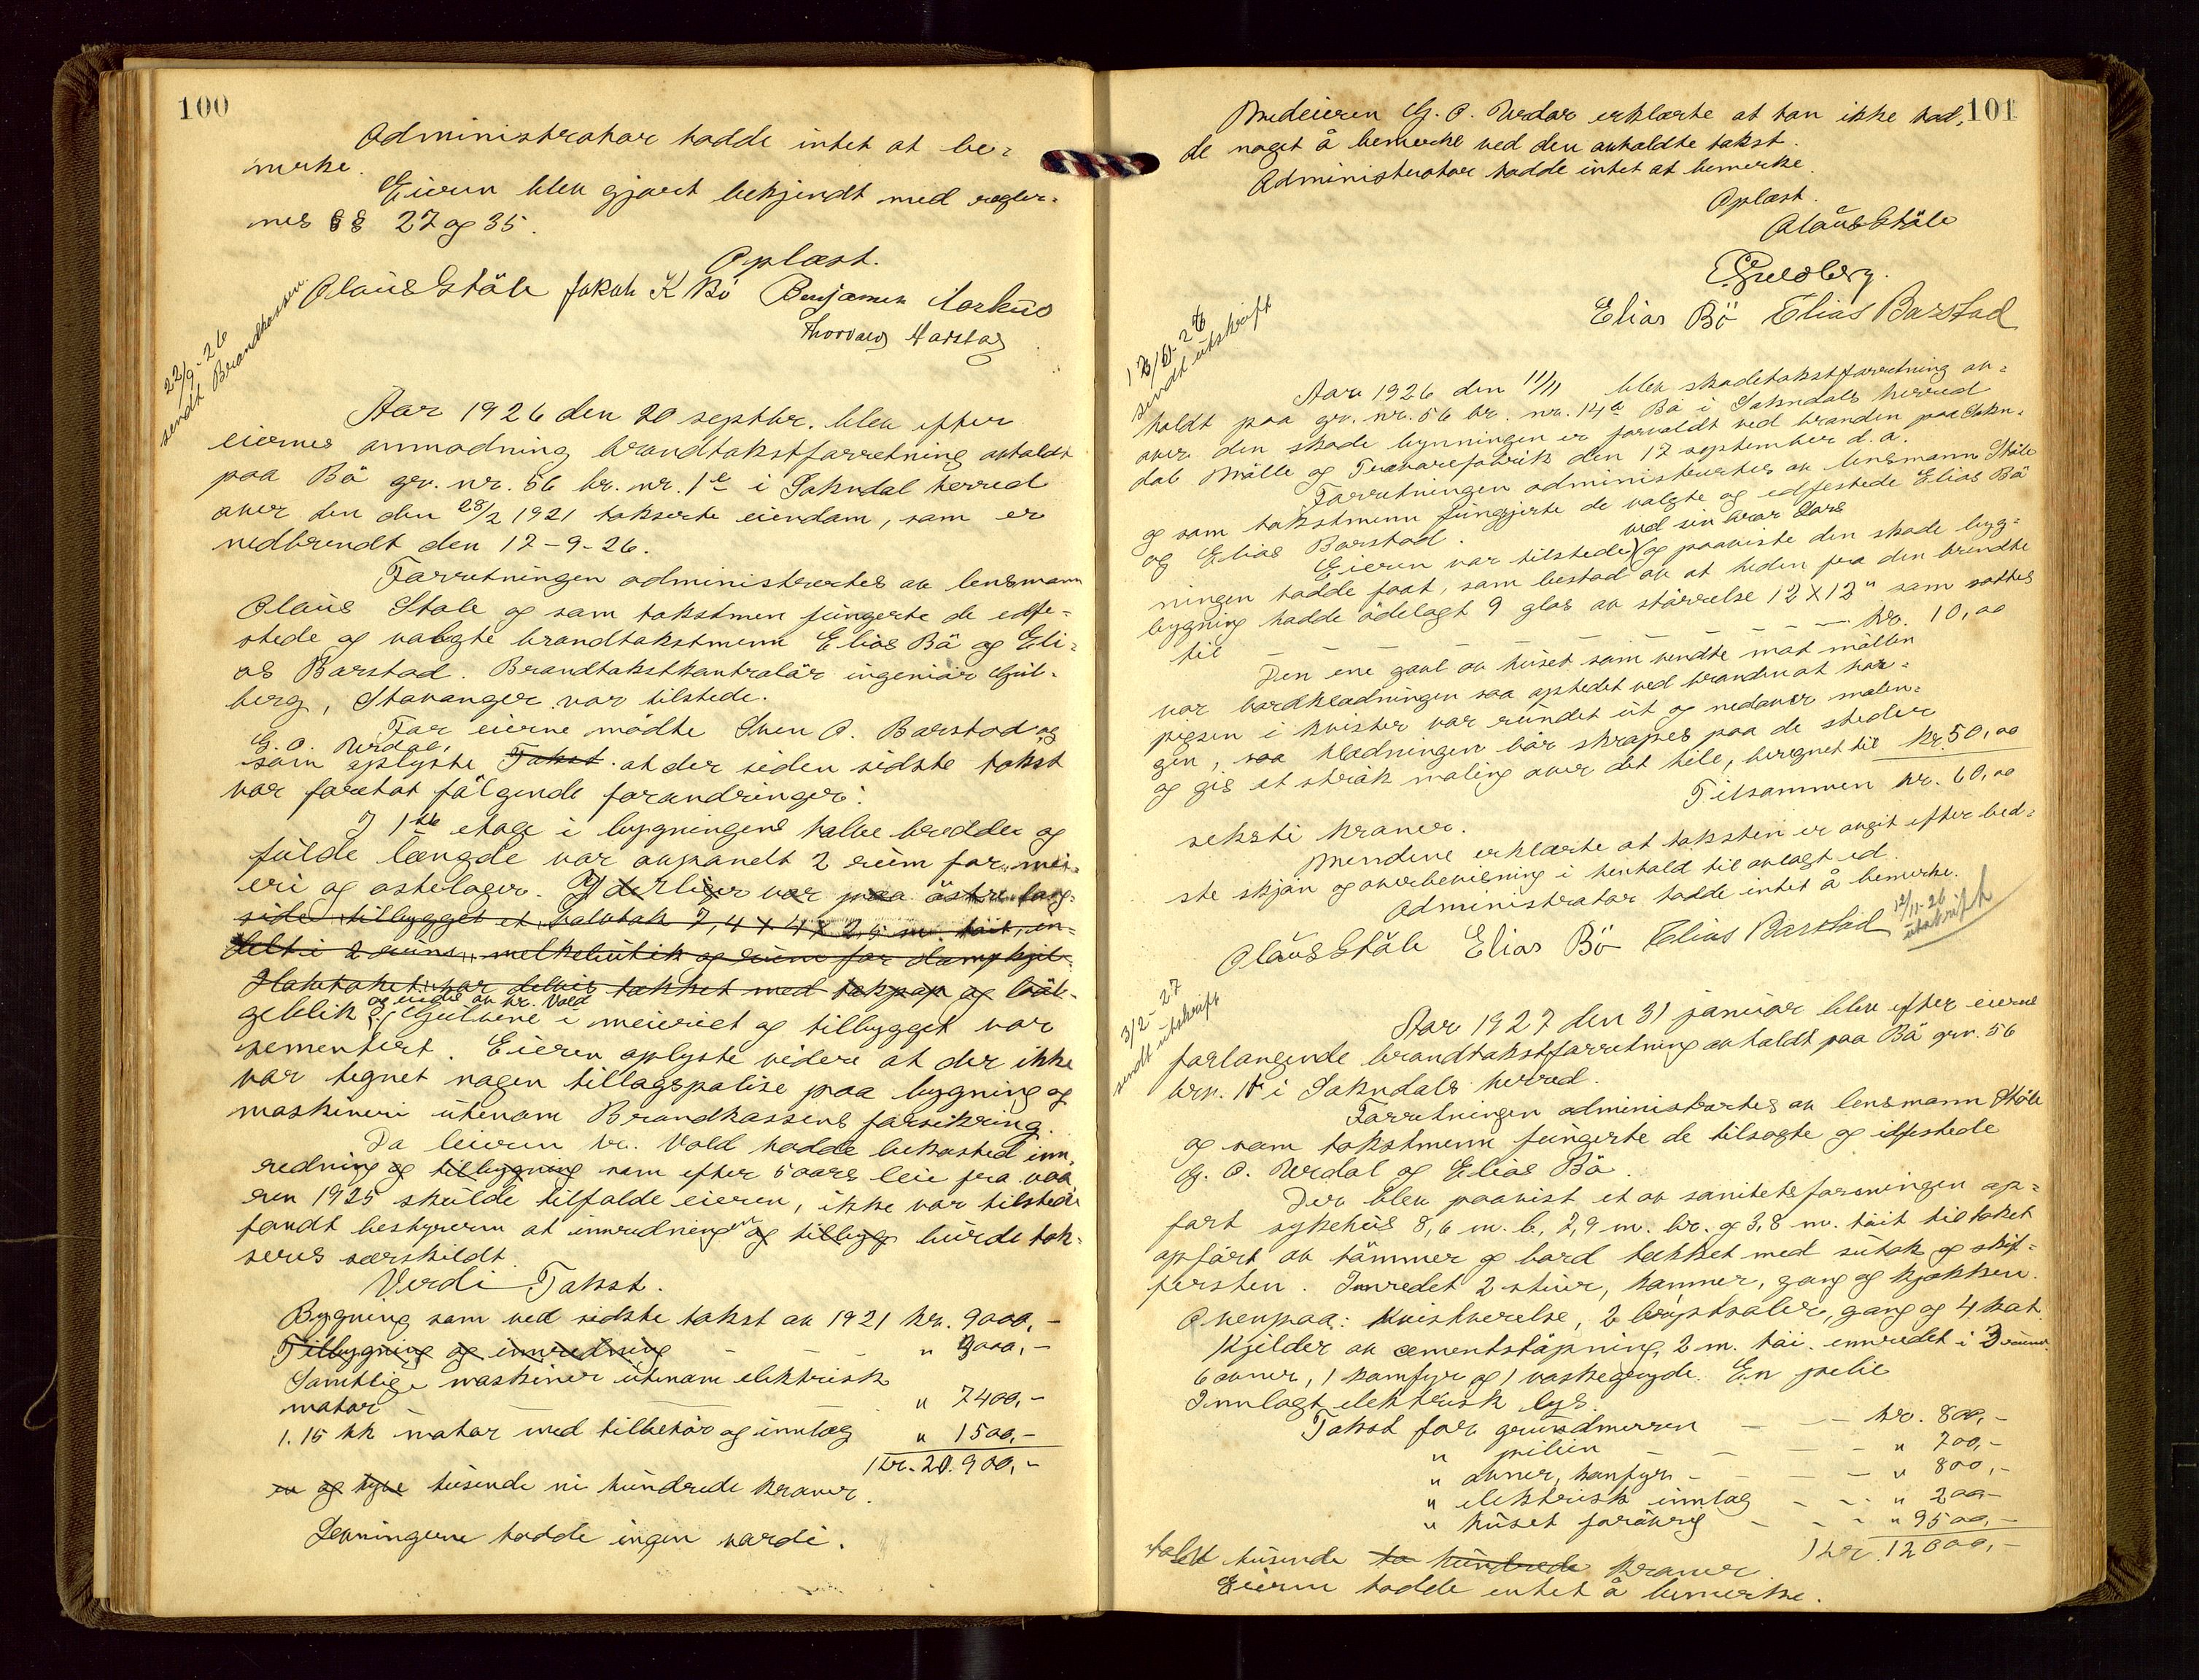 100
Administrator hadde intet at be-
merke.
Eieren blev gjort bekjendt med regler-
nes §§ 27 og 35.
Oplæst.
Olaus Ståle Jakob K Bö Benjamin Markus
Thorvald Harstad
22/9-26
sendt Brandkassen
Aar 1926 den 20 septbr. blev efter
eiernes anmodning brandtakstforretning avholdt
paa Bö grv. nr. 56 br. nr. 1e i Sokndal herred
over den den 28/2 1921 takserte eiendom, som er
nedbrendt den 17-9-26.
Forretningen administrertes av lensmann
Olaus Stole og som takstmen fungerte de edfe-
stede og valgte brandtakstmenn Elias Bö og Eli-
as Barstad. Brandtakstkontrolör ingeniör Gul-
berg, Stavanger var tilstede.
For eierne mödte Sven O. Barstad og
G. O. Urdal,
som oplyste Takst at der siden sidste takst
var foretat fölgende forandringer:
I 1ste etage i bygningens halve bredde og
fulde længde var avpanelt 2 rum for mei-
eri og ostelager. Yderliger var paa östre lang-
side tilbygget et halvtak 7,4 x 4 x 2,5 m. höit, in-
delt i 2 rums, melkebutik og rum for dampkjel.
Halvtaket var delvis tækket med takpap og böl-
geblik og eiedes av hr. Vold Gulvene i meieriet og tilbygget var
sementert. Eieren oplyste videre at der ikke
var tegnet nogen tillægspolise paa bygning og
maskineri utenom Brandkassens forsikring.
Da leieren hr. Vold hadde bekosted inn-
redning og tilbygning som efter 5 aars leie fra vaa-
ren 1925 skulde tilfalde eieren, ikke var tilstede
fandt bestyreren at innredningen og tilbygg burde tak-
seres særskildt.
Verdi Takst.
Bygning som ved sidste takst av 1921 kr. 9000,-
Tilbygning og innredning - - - " 3000,-
Samtlige maskiner utenom elektrisk
motor " 7400,-
1. 15 hk motor med tilbehör og inntag " 1500,-
Kr. 20.900,-
en og tyve tusende ni hundrede kroner.
Levningerne hadde ingen værdi.
101
Medeieren G. O. Urdal erklærte at han ikke had-
de noget å bemerke ved den avholdte takst.
Administrator hadde intet at bemerke.
Oplæst.
Olaus Ståle
E Guldberg.
Elias Bö Elias Barstad
12/11-26
sendt utskrift
Aar 1926 den 11/11 blev skadetakstforretning av-
holdt paa grv. nr. 56 br. nr. 14a Bö i Sokndals herred
over den skade bynningen er forvoldt ved branden paa Sokn-
dal Mölle og Trævarefabrik den 17 september d. a.
Forretningen administrertes av lensmann Ståle
og som takstmenn fungjerte de valgte og edfestede Elias Bö
og Elias Barstad.
Eieren var tilstede ved sin bror Lars og paaviste den skade byg-
ningen hadde faat, som bestod av at heden fra den brendte
bygning hadde ödelagt 9 glas av störrelse 12 X 12" som sattes
til - - - - kr. 10,00
Den ene gavl av huset som vendte mot möllen
var bordkledningen saa ophedet ved branden at har-
pigsen i kvister var rundet ut og nedover malin-
gen, saa kledningen bör skrapes paa de steder
og gis et strök maling over det hele, beregnet til kr. 50,00
Tilsammen kr. 60,00
seksti kroner.
Mendene erklærte at taksten er avgit efter bed-
ste skjön og overbevisning i henhold til avlagt ed.
Administrator hadde intet å bemerke.
Olaus Ståle Elias Bö Elias Barstad
12/11-26
utskrift
3/2-27
sendt utskrift
Aar 1927 den 31 januar blev efter eierne
forlangende brandtakstforretning avholdt paa Bö grn. 56
brn. 1 i Sokndals herred.
Forretningen administrertes av lensmann Ståle
og som takstmenn fungerte de tilsagte og edfestede
G. O. Urdal og Elias Bö.
Der blev paavist et av sanitetsforeningen op-
fört sykehus 8,6 m. l. 7,9 m. br. og 3,8 m. höit til taket
opfört av tömmer og bord tækket med sutak og skif-
fersten. Innredet 2 stuer, kammer, gang og kjökken.
Ovenpaa: kvistverelse, gang og 4 kot.
Kjelder av cementstöpning, 2 m. höi. innredet i 3 rum.
6 ovner, 1 komfyr og 1 vaskegryde. En
Innlagt elektrisk lys.
Takst for grundmuren - - kr. 800,-
" - - - " 700,-
" ovner, komfyr - - - " 800,-
" elektrisk inntag - - - " 200-
" huset forövrig - - - " 9500,-
Kr. 12000,-
tolv tusende to hundrede kroner
Eieren hadde intet å bemerke.